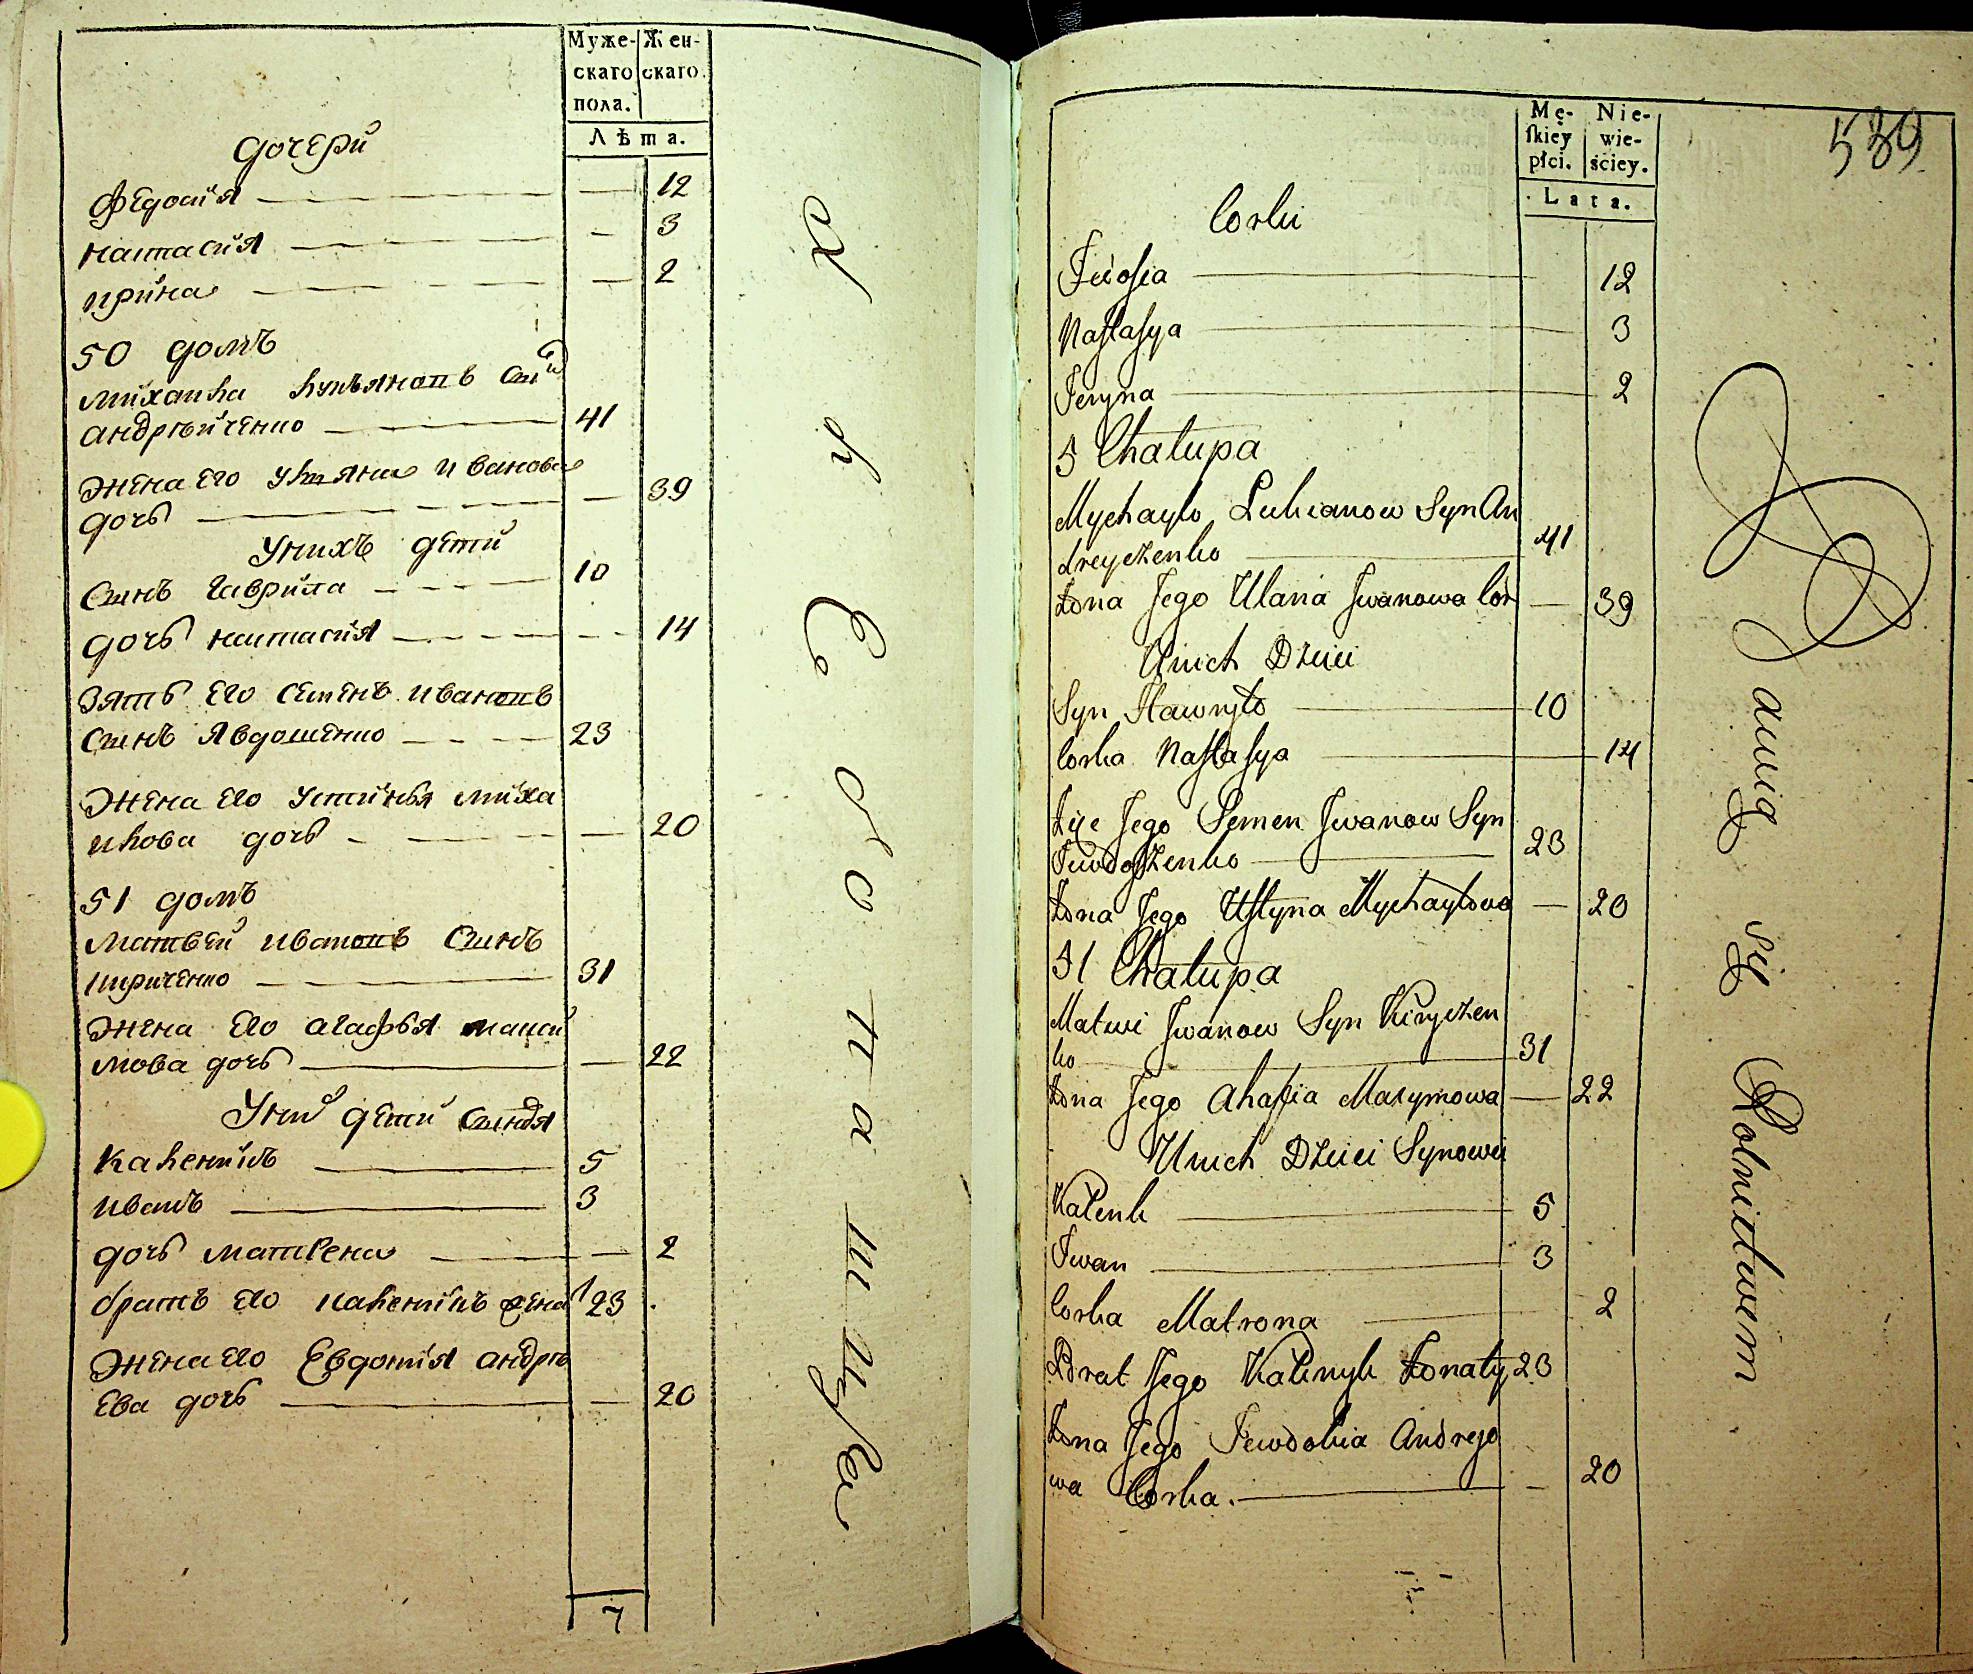 Муже- Жен-
скаго скаго.
пола.
Лѣта.
дочери
Федосія — — 12
настасія — — 3
ирина — — 2
50 домъ
михаила лукъяновъ син
андрѣйченко — 41
жена его улияна иванова
дочь — — 39
Унихъ дети
синъ гаврила — 10
дочь настасія — — 14
зять его семенъ ивановъ
синъ явдошенко — 23
жена его устинья миха
илова дочь — — 20
51 домъ
матвей ивановъ синъ
кириченко — 31
жена его агафья макси
мова дочь — — 22
Уни дети синовя
каленикъ — 5
иванъ — 3
дочь матрена — — 2
братъ его каленикъ жена 23
жена его Евдокия андрѣ
ева дочь — — 20
7
Хлебопашцы
539
Mę- Nie-
ſkiey wie-
płci. ściey.
Lata.
Corki
Feodoſia — 12
Naſtaſya — 3
Jeryna — 2
5 Chałupa
Mychayło Lukianow Syn An
dreyczenko — 41
żona Jego Ulana Jwanowa Cór — 39
Unich Dzieci
Syn Hawryło — 10
Corka Naſtaſya — 14
Zięć Jego Semen Jwanow Syn
Jewdoſzenko — 23
żona Jego Uſtyna Mychayłowa — 20
51 Chałupa
Matwi Jwanow Syn Kiryczen
ko — 31
żona Jego Ahafia Maxymowa — 22
Unich Dzieci Synowie
Kalenik — 5
Iwan — 3
Corka Matrona — 2
Brat Jego Kalenyk żonaty 23
żona Jego Jewdokia Andrejo
wa Corka. — — 20
Bawią się Rolnictwem